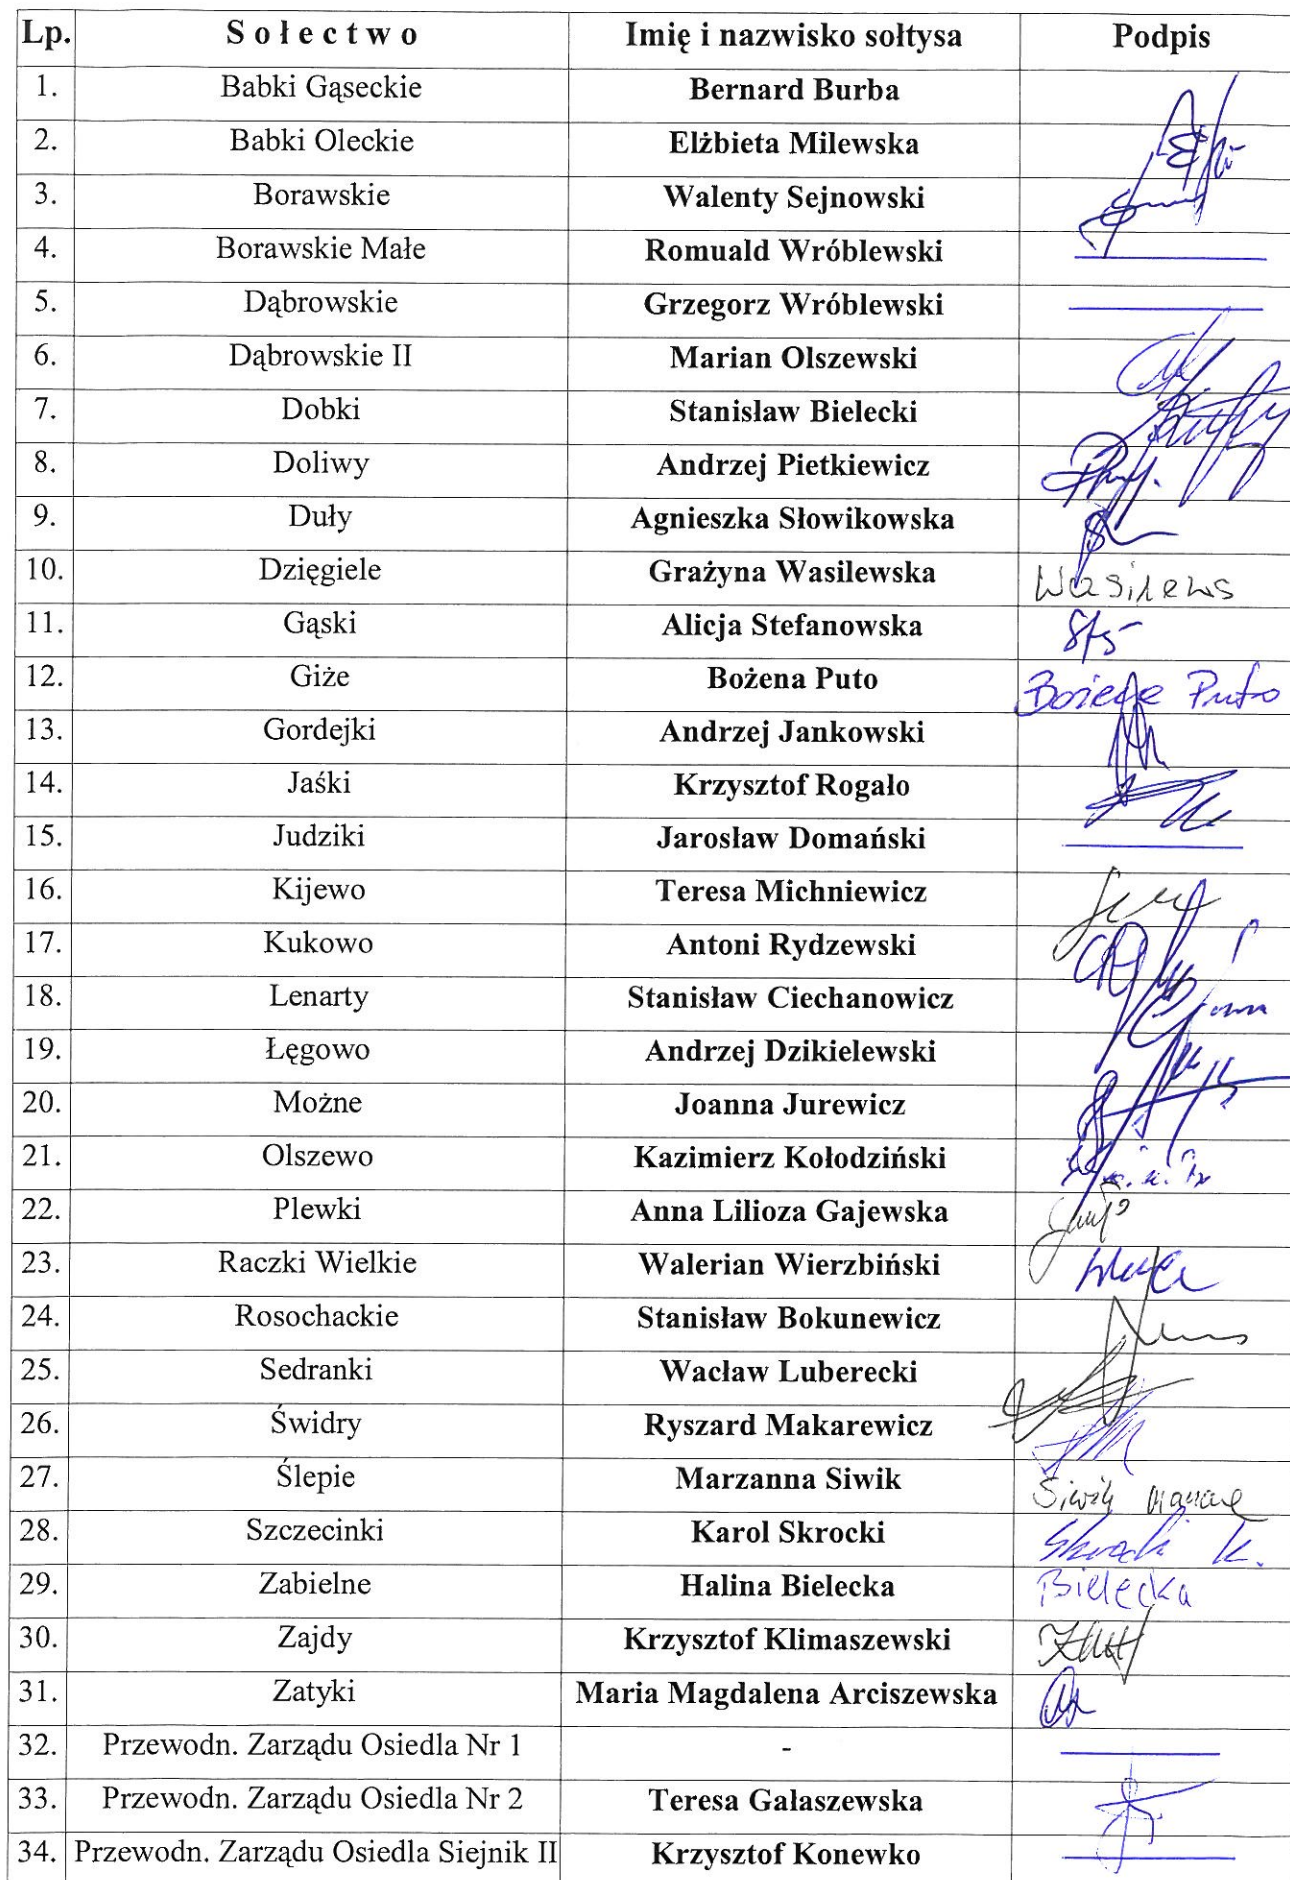 Lp. Sołectwo Imię i nazwisko sołtysa Podpis
1. Babki Gąseckie Bernard Burba
2. Babki Oleckie Elżbieta Milewska
3. Borawskie Walenty Sejnowski
4. Borawskie Małe Romuald Wróblewski
5. Dąbrowskie Grzegorz Wróblewski
6. Dąbrowskie II Marian Olszewski
7. Dobki Stanisław Bielecki
8. Doliwy Andrzej Pietkiewicz
9. Duły Agnieszka Słowikowska
10. Dzięgiele Grażyna Wasilewska
11. Gąski Alicja Stefanowska
12. Giże Bożena Puto Bożena Puto
13. Gordejki Andrzej Jankowski
14. Jaśki Krzysztof Rogało
15. Judziki Jarosław Domański
16. Kijewo Teresa Michniewicz
17. Kukowo Antoni Rydzewski
18. Lenarty Stanisław Ciechanowicz
19. Łęgowo Andrzej Dzikielewski
20. Możne Joanna Jurewicz
21. Olszewo Kazimierz Kołodziński
22. Plewki Anna Lilioza Gajewska
23. Raczki Wielkie Walerian Wierzbiński
24. Rosochackie Stanisław Bokunewicz
25. Sedranki Wacław Luberecki
26. Świdry Ryszard Makarewicz
27. Ślepie Marzanna Siwik Siwik
28. Szczecinki Karol Skrocki Skrocki K.
29. Zabielne Halina Bielecka Bielecka
30. Zajdy Krzysztof Klimaszewski
31. Zatyki Maria Magdalena Arciszewska
32. Przewodn. Zarządu Osiedla Nr 1 -
33. Przewodn. Zarządu Osiedla Nr 2 Teresa Gałaszewska
34. Przewodn. Zarządu Osiedla Siejnik II Krzysztof Konewko